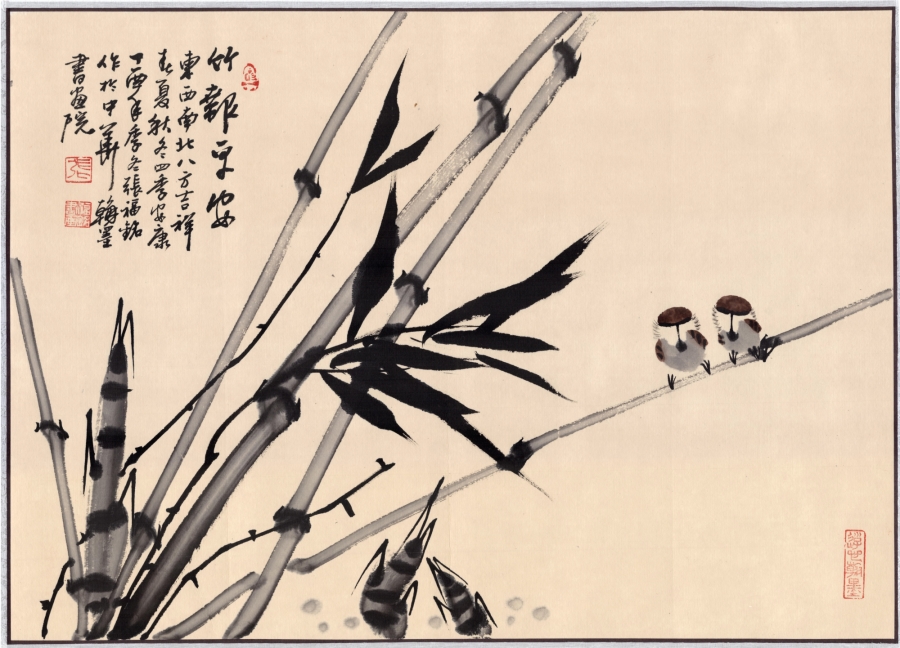 竹報平安
東西南北八方吉祥
春夏秋冬四季安康
丁酉年季冬張福銘
作於中華翰墨
書畫院